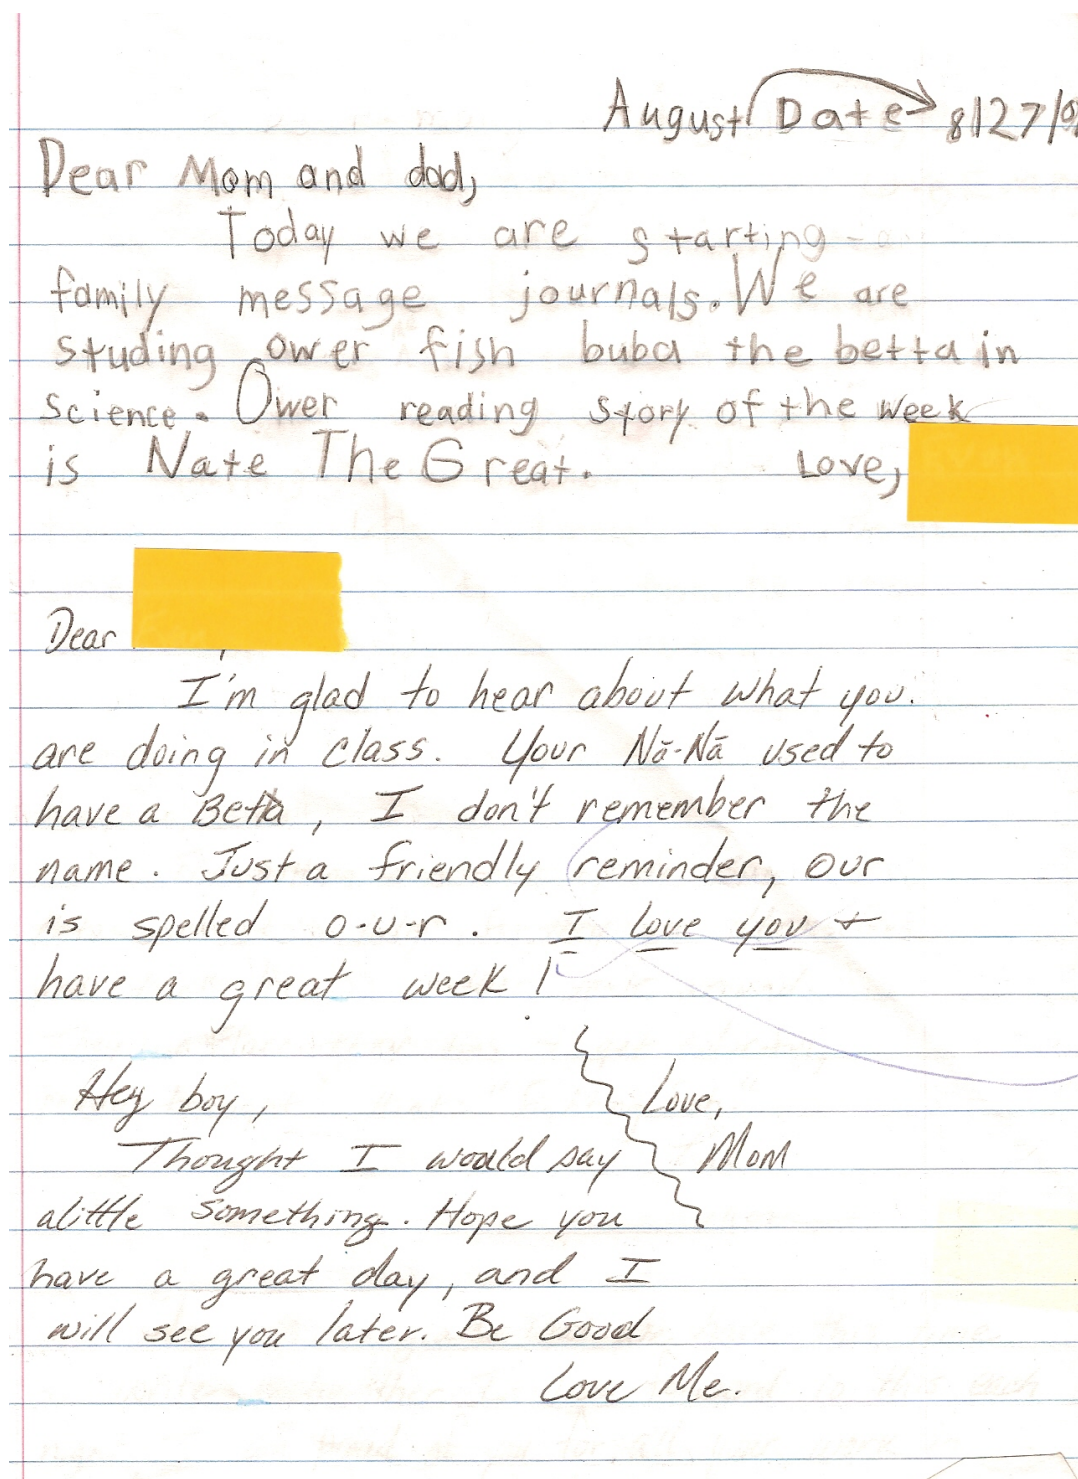 August Date → 8/27/0
Dear Mom and dad,
Today we are starting
family message journals. We are
studing ower fish buba the betta in
science. Ower reading story of the week
is Nate The Great. Love,
Dear
I'm glad to hear about what you.
are doing in class. Your Nā-Nā used to
have a Beta, I don't remember the
name. Just a friendly reminder, our
is spelled o-u-r. I love you +
have a great week!
Love,
Mom
Hey boy,
Thought I would say
alittle something. Hope you
have a great day, and I
will see you later. Be Good
Love Me.